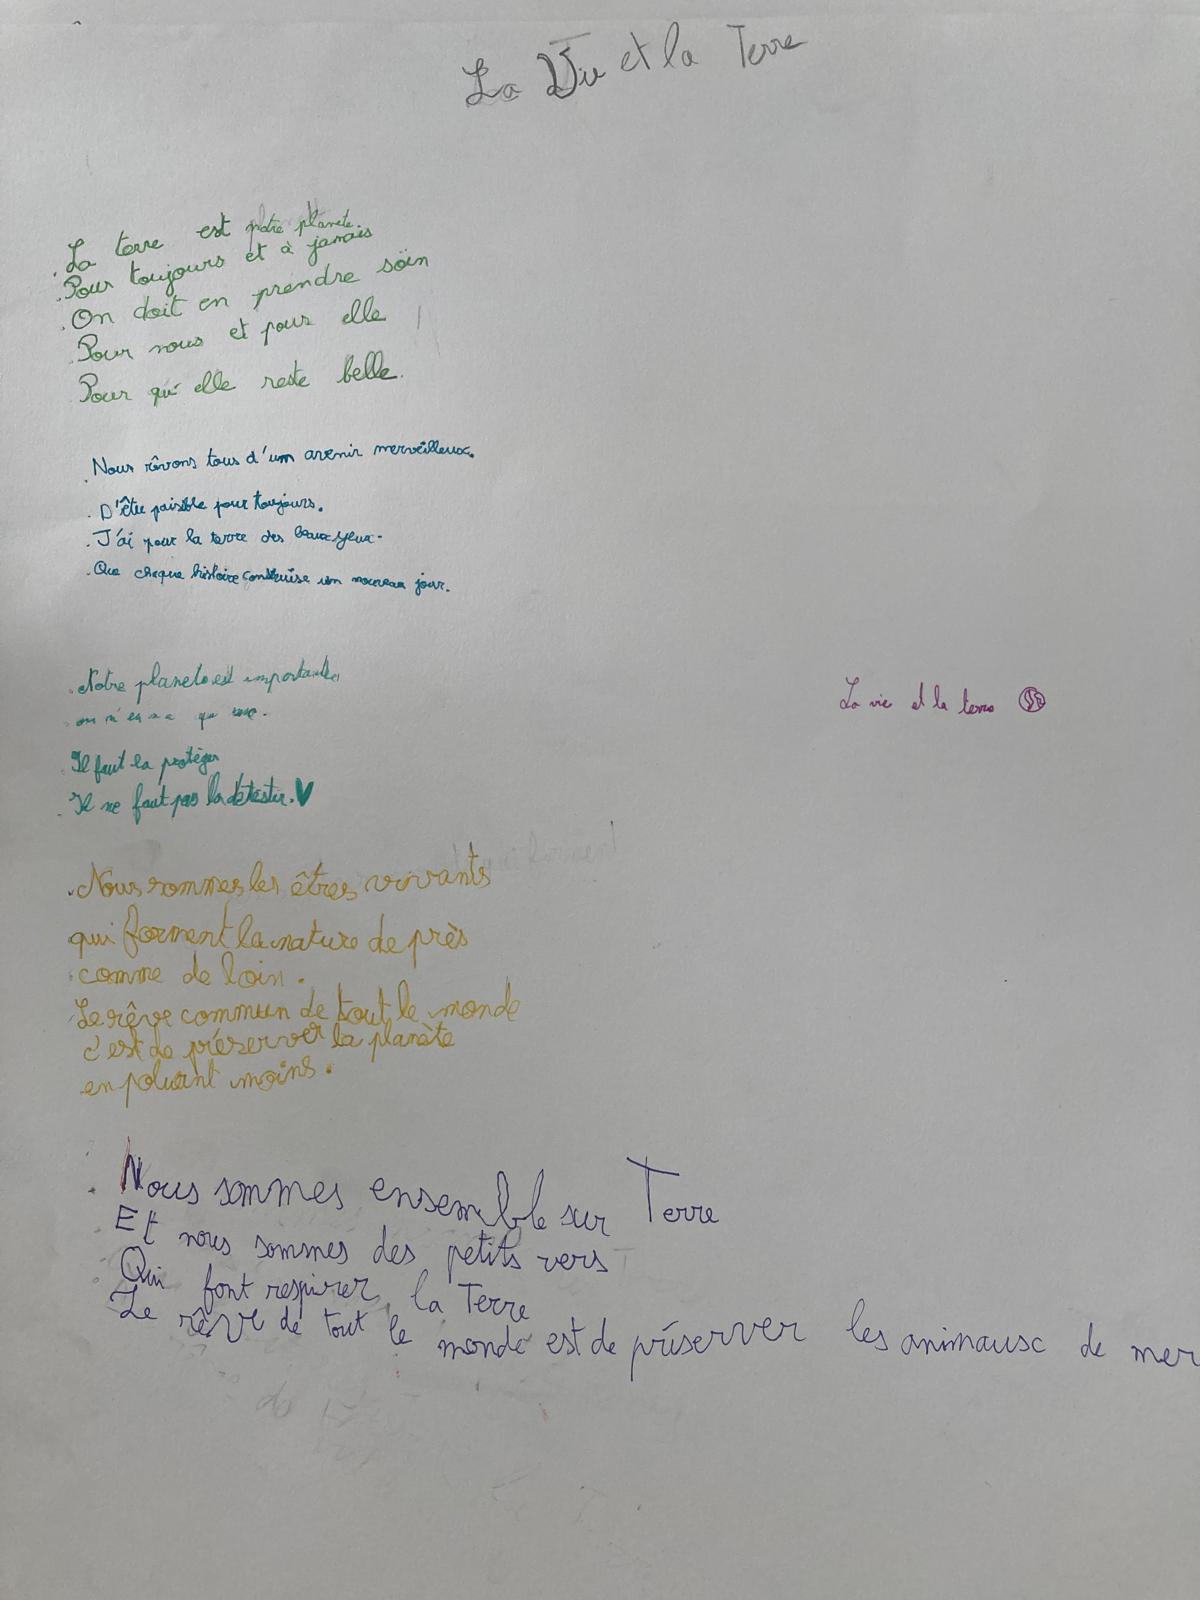 La Vie et la Terre
La terre est notre planète
Pour toujours et à jamais
On doit en prendre soin
Pour nous et pour elle
Pour qu'elle reste belle.
Nous rêvons tous d'un avenir merveilleux.
D'être paisible pour toujours.
J'ai pour la terre des beaux yeux.
Que chaque histoire construise un nouveau jour.
Notre planète est importante
on n'en a que
Il faut la protéger
Il ne faut pas la détester.
La vie et la terre
Nous sommes les êtres vivants
qui forment la nature de près
comme de loin.
Le rêve commun de tout le monde
c'est de préserver la planète
en poluant moins.
Nous sommes ensemble sur Terre
Et nous sommes des petits vers
Qui font respirer la Terre
Le rêve de tout le monde est de préserver les animaux de mer